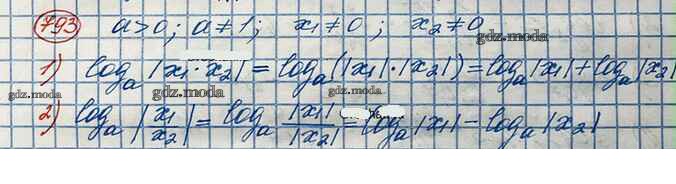 793 a>0; a≠1; x₁≠0; x₂≠0
gdz.moda
1) logₐ|x₁·x₂| = logₐ(|x₁|·|x₂|) = logₐ|x₁| + logₐ|x₂|
gdz.moda gdz.moda
2) logₐ|x₁/x₂| = logₐ |x₁|/|x₂| = logₐ|x₁| - logₐ|x₂|
gdz.moda